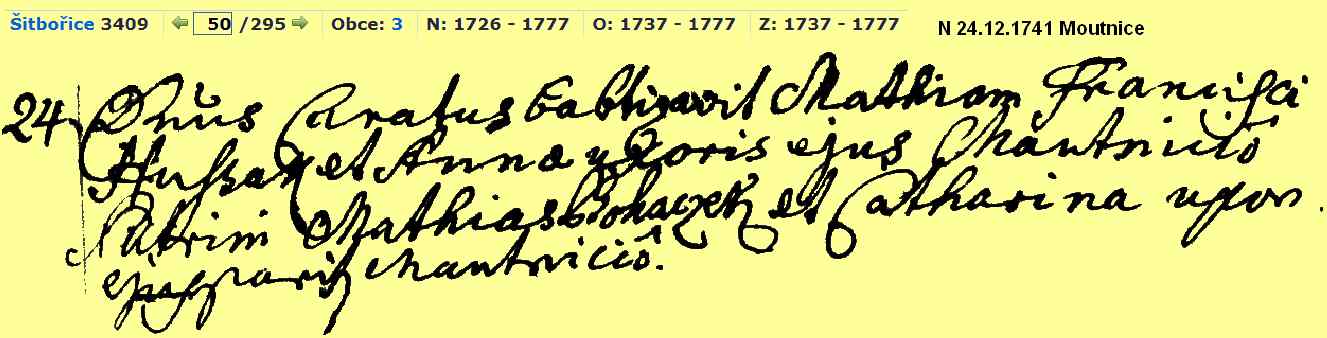 Šitbořice 3409 50 /295 Obce: 3 N: 1726 - 1777 O: 1737 - 1777 Z: 1737 - 1777 N 24.12.1741 Moutnice
24 Dnus Curatus babtisavit Mathiam Francisci
et Annæ uxoris ejus Mautnicio
Patrini Mathias et Catharina uxor
ejus Mautnicio.